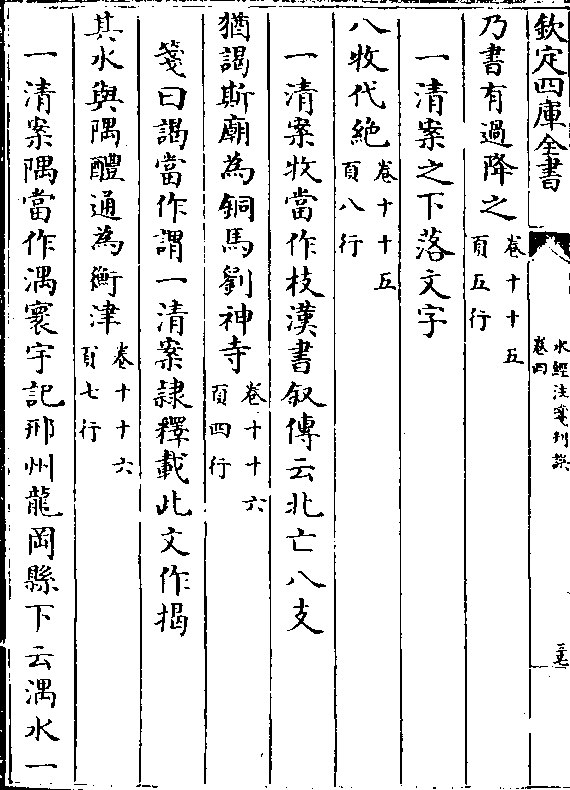 欽定四庫全書
水經注箋刋誤
卷四
三十七
乃書有過降之卷十十五
頁五行
一清案之下落文字
八牧代絶卷十十五
頁八行
一清案牧當作枝漢書叙傳云北亡八支
猶謁斯廟為銅馬劉神寺卷十十六
頁四行
箋曰謁當作謂一清案隸釋載此文作揭
其水與隅醴通為衡津卷十十六
頁七行
一清案隅當作湡寰宇記邢州龍岡縣下云湡水一